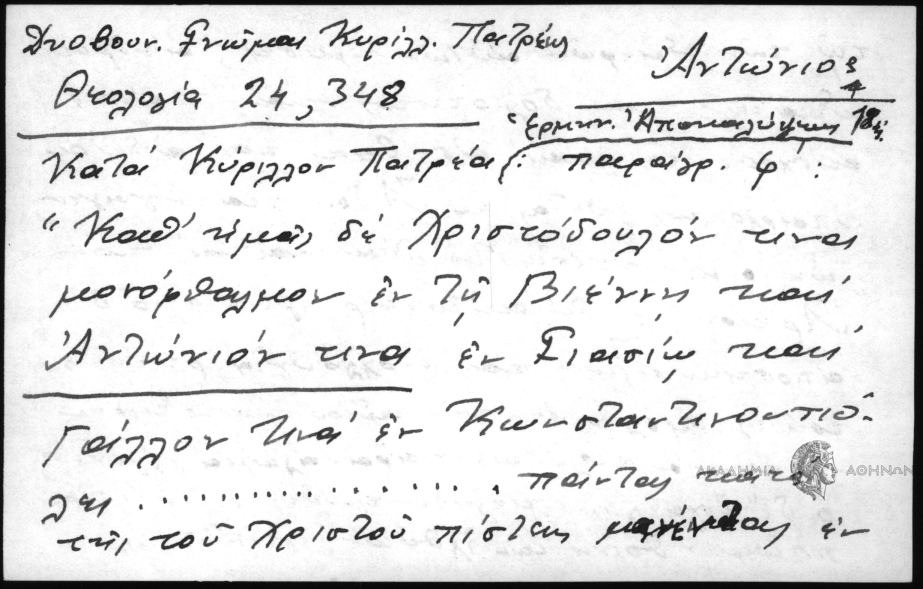 Δυοβουν. Γνῶμαι Κυρίλλ. Πατρέως
Θεολογία 24, 348
Ἀντώνιος
Ἑρμην. Ἀποκαλύψεως 18
Κατά Κύριλλον Πατρέα : παραγρ. φ :
“Καθ' ἡμᾶς δέ Χριστόδουλόν τινα
μονόφθαλμον ἐν τῇ Βιέννῃ καί
Ἀντώνιόν τινα ἐν Γιασίῳ καί
Γάλλον τινά ἐν Κωνσταντινουπό-
λει .................. πάντας κατά
τῆς τοῦ Χριστοῦ πίστεως μανέντας ἐν
ΑΚΑΔΗΜΙΑ ΑΘΗΝΩΝ